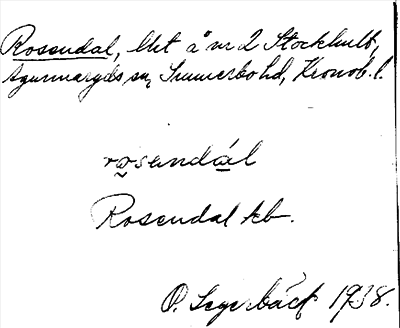 Rosendal, lht å nr 2 Stockhult,
Agunnaryds sn, Sunnerbo hd, Kronob. l.
rosendál
Rosendal kb.
O. Segerbäck 1938.